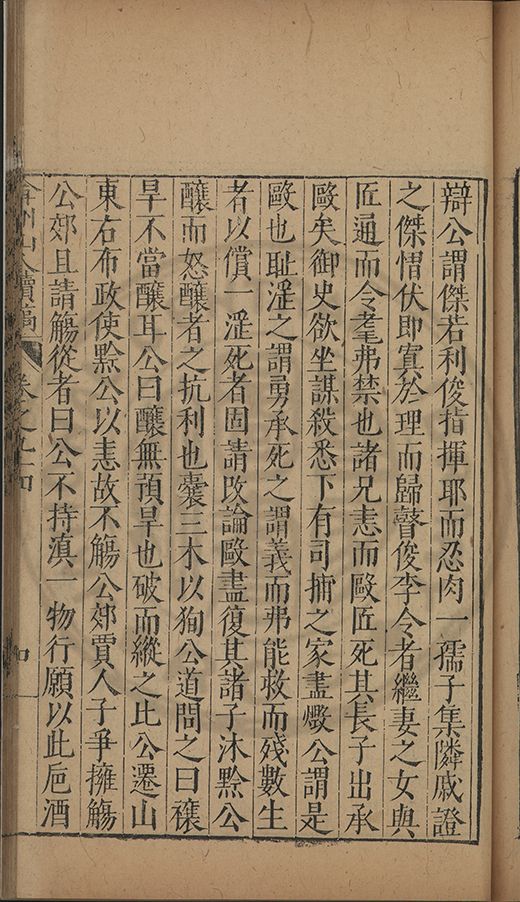 辯公謂傑若利俊指揮耶而忍肉一孺子集隣戚證
之傑慴伏即寘於理而歸瞽俊李令者繼妻之女與
匠通而令耄弗禁也諸兄恚而毆匠死其長子出承
毆矣御史欲坐謀殺悉下有司捕之家盡燬公謂是
毆也恥淫之謂勇承死之謂義而弗能救而殘數生
者以償一淫死者固請改論毆盡復其諸子沐黔公
釀而怒釀者之抗利也囊三木以狥公道問之曰禳
旱不當釀耳公曰釀無預旱也破而縱之比公遷山
東右布政使黔公以恚故不觴公郊賈人子爭擁觴
公郊且請觴從者曰公不持滇一物行願以此巵酒
弇州山人續稿 卷之九十四